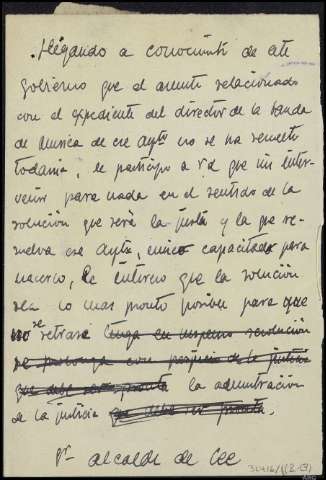 .Llegando a conocimiento de este
gobierno que el asunto relacionado
con el expediente del director de la banda
de musica de ese Aytº no se ha resuelto
todavia, le participo a Vd que sin inter-
venir para nada en el sentido de la
solución que será la justa y la que re-
suelva ese Aytº, unico capacitado para
hacerlo, le intereso que la solución
sea lo mas pronto posible para que
no se retrase tenga en suspenso resolución
se prolonga con perjuicio de la justicia
que debe ser pronta la administración
de la justicia que debe ser pronta.
Sr alcalde de Cee
30416/1(2-13)